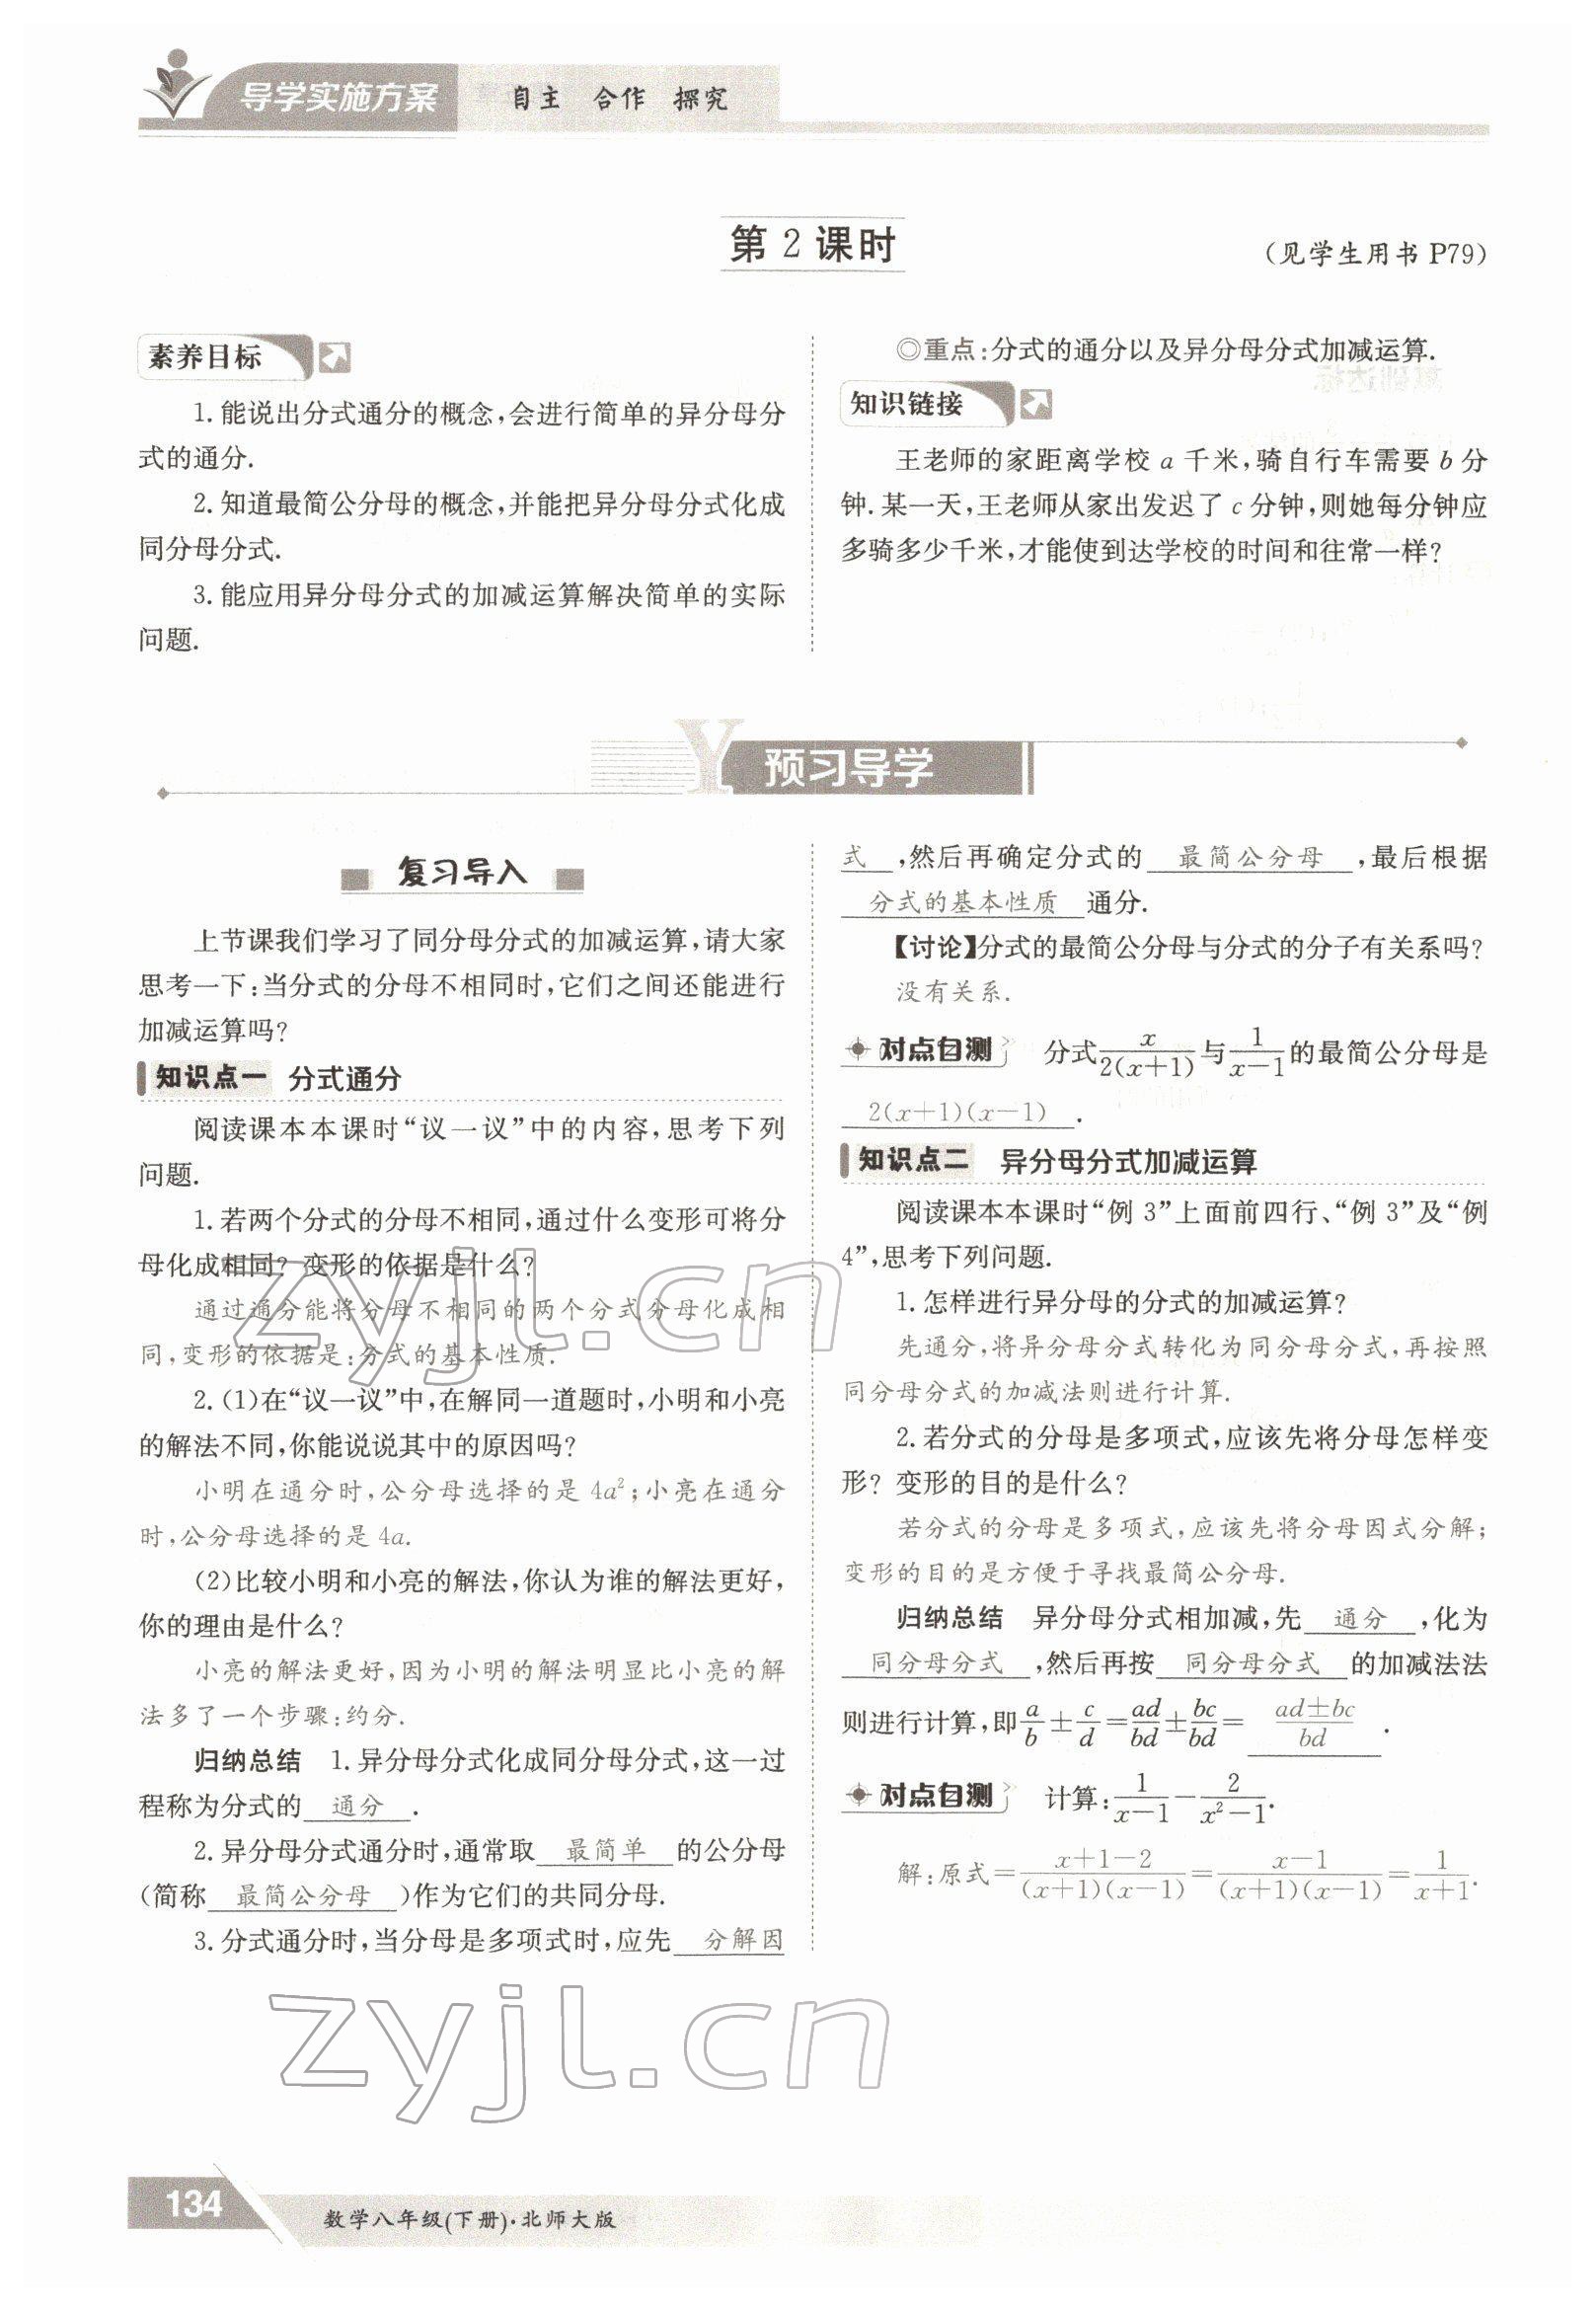 导学实施方案 自主 合作 探究
第 2 课时
(见学生用书 P79)
素养目标
1. 能说出分式通分的概念,会进行简单的异分母分
式的通分.
2. 知道最简公分母的概念,并能把异分母分式化成
同分母分式.
3. 能应用异分母分式的加减运算解决简单的实际
问题.
◎重点:分式的通分以及异分母分式加减运算.
知识链接
王老师的家距离学校 a 千米,骑自行车需要 b 分
钟. 某一天,王老师从家出发迟了 c 分钟,则她每分钟应
多骑多少千米,才能使到达学校的时间和往常一样?
Y 预习导学
复习导入
上节课我们学习了同分母分式的加减运算,请大家
思考一下:当分式的分母不相同时,它们之间还能进行
加减运算吗?
知识点一 分式通分
阅读课本本课时“议一议”中的内容,思考下列
问题.
1. 若两个分式的分母不相同,通过什么变形可将分
母化成相同? 变形的依据是什么?
通过通分能将分母不相同的两个分式分母化成相
同,变形的依据是:分式的基本性质.
2. (1)在“议一议”中,在解同一道题时,小明和小亮
的解法不同,你能说说其中的原因吗?
小明在通分时,公分母选择的是 4a²;小亮在通分
时,公分母选择的是 4a.
(2)比较小明和小亮的解法,你认为谁的解法更好,
你的理由是什么?
小亮的解法更好,因为小明的解法明显比小亮的解
法多了一个步骤:约分.
归纳总结 1. 异分母分式化成同分母分式,这一过
程称为分式的 通分 .
2. 异分母分式通分时,通常取 最简单 的公分母
(简称 最简公分母 )作为它们的共同分母.
3. 分式通分时,当分母是多项式时,应先 分解因
式 ,然后再确定分式的 最简公分母 ,最后根据
分式的基本性质 通分.
【讨论】分式的最简公分母与分式的分子有关系吗?
没有关系.
对点自测 分式x/2(x+1)与1/x-1的最简公分母是
2(x+1)(x-1) .
知识点二 异分母分式加减运算
阅读课本本课时“例 3”上面前四行、“例 3”及“例
4”,思考下列问题.
1. 怎样进行异分母的分式的加减运算?
先通分,将异分母分式转化为同分母分式,再按照
同分母分式的加减法则进行计算.
2. 若分式的分母是多项式,应该先将分母怎样变
形? 变形的目的是什么?
若分式的分母是多项式,应该先将分母因式分解;
变形的目的是方便于寻找最简公分母.
归纳总结 异分母分式相加减,先 通分 ,化为
同分母分式 ,然后再按 同分母分式 的加减法法
则进行计算,即a/b±c/d=ad/bd±bc/bd= ad±bc/bd .
对点自测 计算:1/x-1-2/x²-1.
解:原式=x+1-2/(x+1)(x-1)=x-1/(x+1)(x-1)=1/x+1.
zyjl.cn
zyjl.cn
134 数学八年级(下册)·北师大版